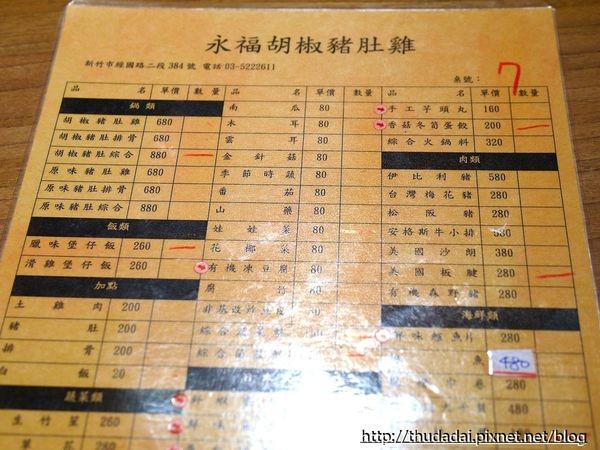 永福胡椒豬肚雞
新竹市經國路二段384號 電話03-5222611
桌號：
7
品 名 單價 數量
鍋類
胡椒豬肚雞 680
胡椒豬肚排骨 680
胡椒豬肚綜合 880
原味豬肚雞 680
原味豬肚排骨 680
原味豬肚綜合 880
飯類
臘味堡仔飯 260
滑雞堡仔飯 260
加點
土雞肉 200
豬肚 200
排骨 200
白飯 20
蔬菜類
生竹筻 260
品 名 單價 數量
南瓜 80
木耳 80
雲耳 80
金針菇 80
季節時蔬 80
番茄 80
山藥 80
娃娃菜 80
花椰菜 80
有機凍豆腐 80
腐竹 80
品 名 單價 數量
手工芋頭丸 160
香菇冬筍蛋餃 200
綜合火鍋料 320
肉類
伊比利豬 580
台灣梅花豬 280
松阪豬 280
安格斯牛小排 580
美國沙朗 380
美國板腱 280
有機森野豬 280
海鮮類
鮮味鯰魚片 280
魚 480
中卷 280
480
280
http://thudadai.pixnet.net/blog